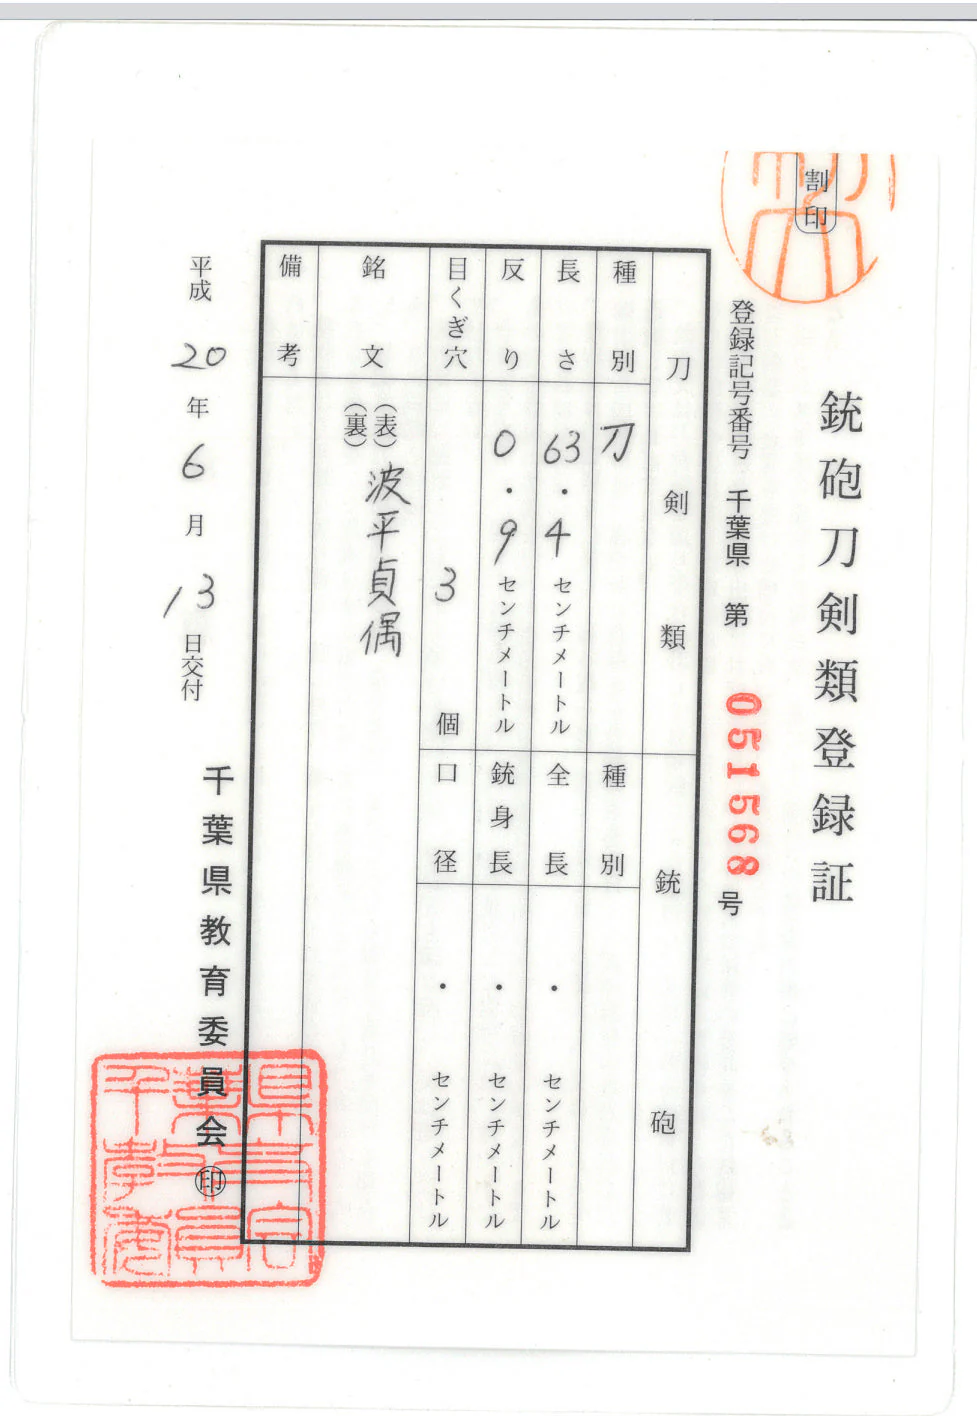 割印
銃砲刀剣類登録証
登録記号番号 千葉県 第 051568 号
刀剣類
種別 刀
長さ 63.4 センチメートル
反り 0.9 センチメートル
目くぎ穴 3 個
銘文 (表) 波平貞偶
(裏)
備考
銃砲
種別
全長 ・ センチメートル
銃身長 ・ センチメートル
口径 ・ センチメートル
平成 20 年 6 月 13 日交付
千葉県教育委員会 印